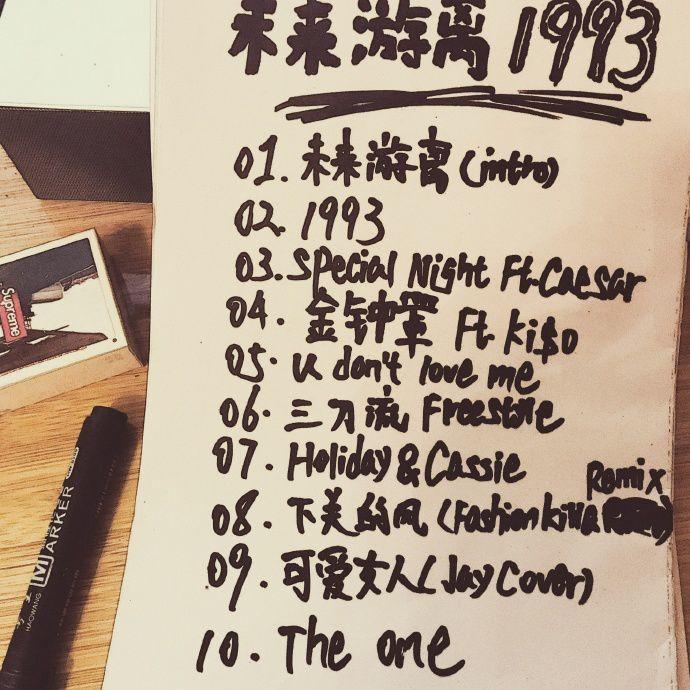 未来游离 1993
01. 未来游离 (intro)
02. 1993
03. Special Night Ft. Caesar
04. 金钟罩 Ft Ki$o
05. u don't love me
06. 三刀流 Freestyle
07. Holiday & Cassie
08. 下美的风 (Fashion killa Remix)
09. 可爱女人 (Jay Cover)
10. The one
Supreme
MARKER
HAOWANG